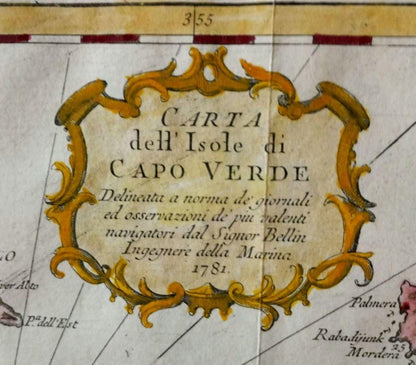 355
CARTA
dell' Isole di
CAPO VERDE
Delineata a norma de' giornali
ed osservazioni de' piu valenti
navigatori dal Signor Bellin
Ingegnere della Marina
1781.
LO
ver Alto
P.ta dell'Est
Palmera
Rabadijunk
25
Mordera